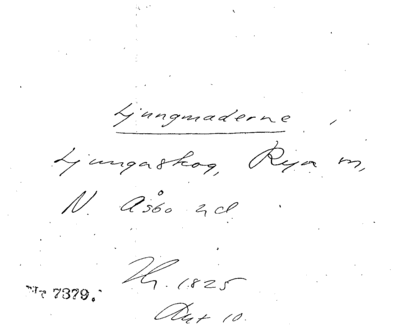 Ljungmaderne
Ljungaskog, Rya m,
N. Åsbo hd
1825
Akt 10.
Nr 7379.